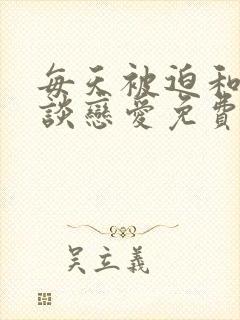 每天被迫和
談戀愛免費
吳立義